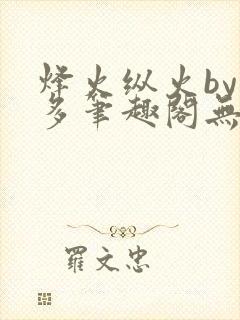 烽火纵火by
多笔趣阁無
羅文忠